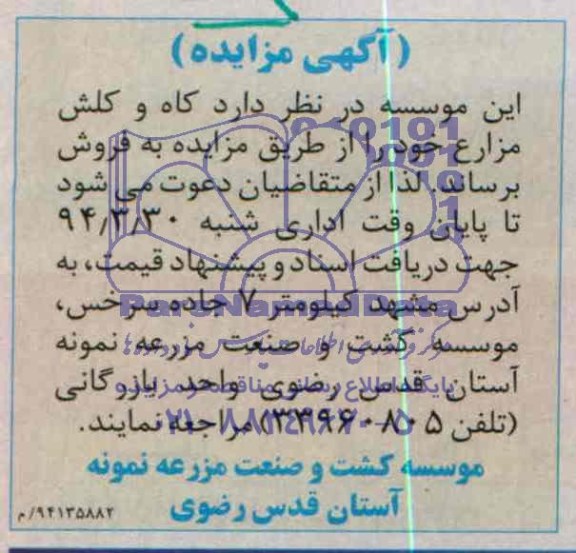 (آگهی مزایده)
این موسسه در نظر دارد کاه و کلش
مزارع خود را از طریق مزایده به فروش
برساند. لذا از متقاضیان دعوت می شود
تا پایان وقت اداری شنبه ۹۴/۳/۳۰
جهت دریافت اسناد و پیشنهاد قیمت، به
آدرس مشهد کیلومتر ۷ جاده سرخس،
موسسه کشت و صنعت مزرعه نمونه
آستان قدس رضوی واحد بازرگانی
(تلفن ۵-۳۳۹۶۰۸۰) مراجعه نمایند.
موسسه کشت و صنعت مزرعه نمونه
آستان قدس رضوی
۹۴۱۳۵۸۸۲/م
ParsNamadData